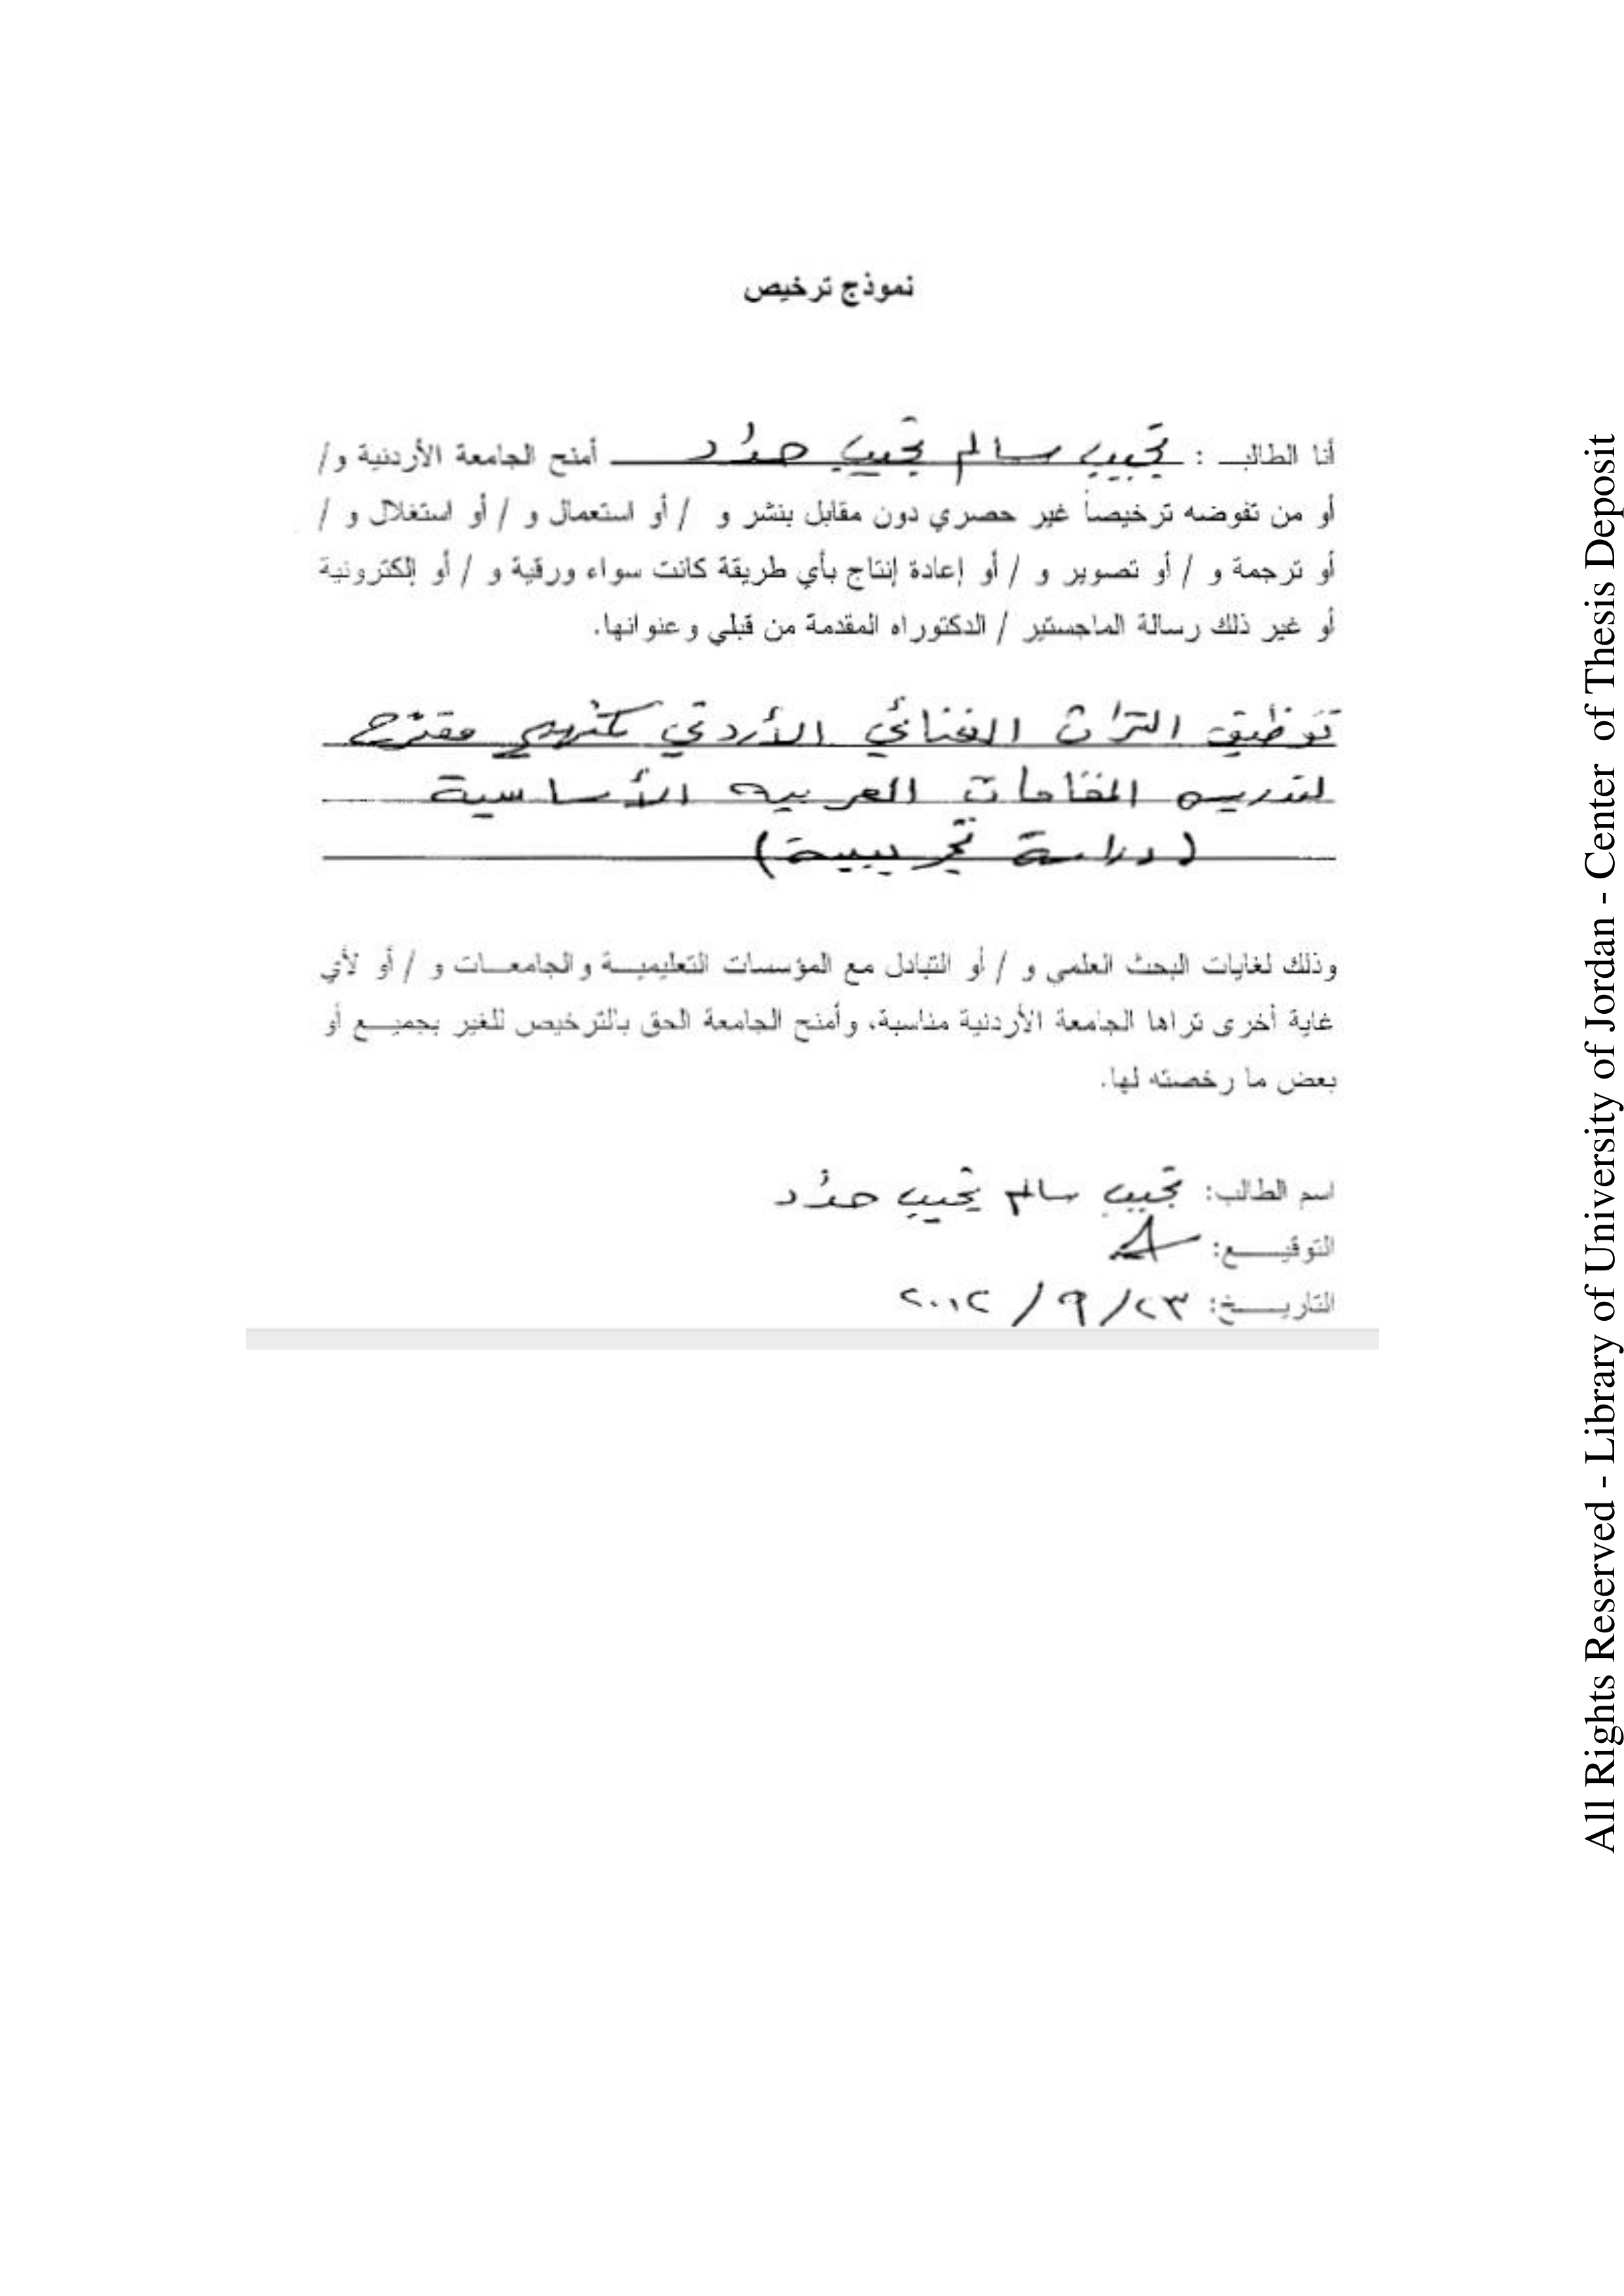 نموذج ترخيص
أنا الطالب : نجيب سالم نجيب حداد أمنح الجامعة الأردنية و/
أو من تفوضه ترخيصاً غير حصري دون مقابل بنشر و / أو استعمال و / أو استغلال و /
أو ترجمة و / أو تصوير و / أو إعادة إنتاج بأي طريقة كانت سواء ورقية و / أو إلكترونية
أو غير ذلك رسالة الماجستير / الدكتوراه المقدمة من قبلي وعنوانها.
توظيف التراث الغنائي الأردني كمنهج مقترح
لتدريس المقامات العربيه الأساسية
(دراسة تجريبية)
وذلك لغايات البحث العلمي و / أو التبادل مع المؤسسات التعليمية والجامعات و / أو لأي
غاية أخرى تراها الجامعة الأردنية مناسبة، وأمنح الجامعة الحق بالترخيص للغير بجميع أو
بعض ما رخصته لها.
اسم الطالب: نجيب سالم نجيب حداد
التوقيع:
التاريخ: ٢٣/ ٩ / ٢٠١٢
All Rights Reserved - Library of University of Jordan - Center of Thesis Deposit